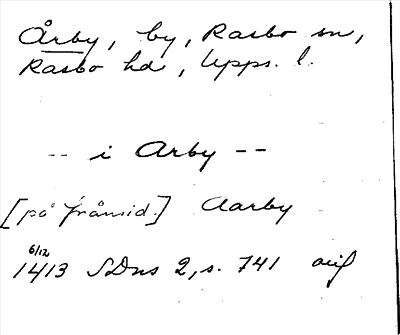 Årby, by, Rasbo sn,
Rasbo hd, Upps. l.
-- i Arby --
[på frånsid.] Aarby
6/12
1413 SDns 2, s. 741 avf